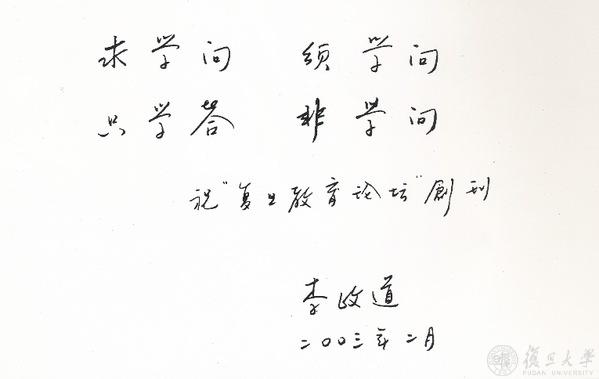 求学问 须学问
只学答 非学问
祝"复旦教育论坛"創刊
李政道
二〇〇三年二月
復旦大學
FUDAN UNIVERSITY